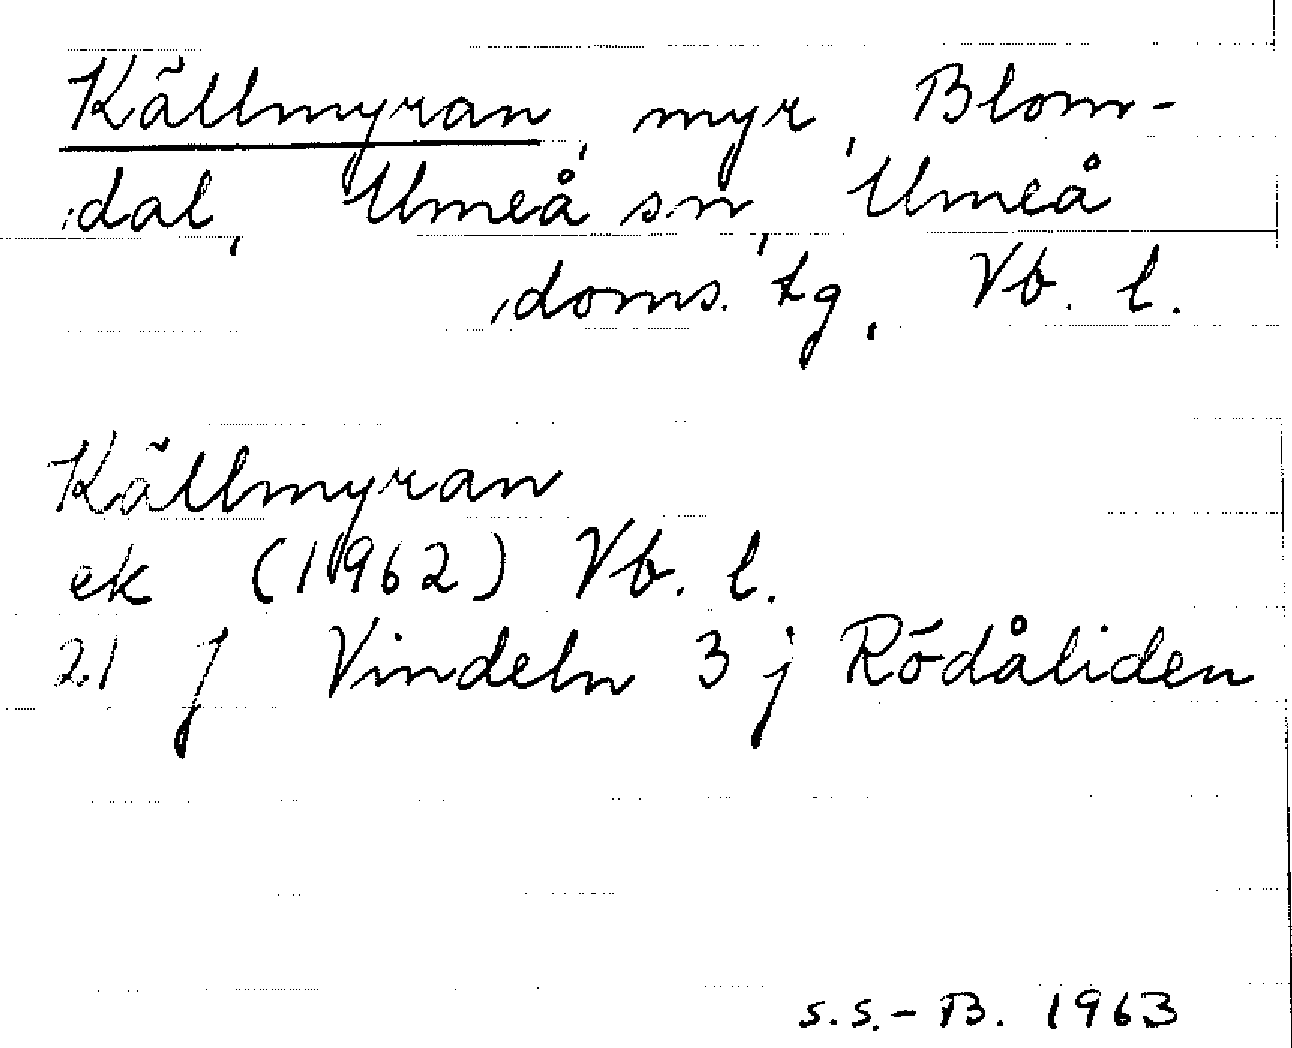 Källmyran, myr, Blom-
dal, Umeå sn, Umeå
doms. tg, Vb. l.
Källmyran
ek (1962) Vb. l.
21 J Vindeln 3 j Rödåliden
S.S.-B. 1963